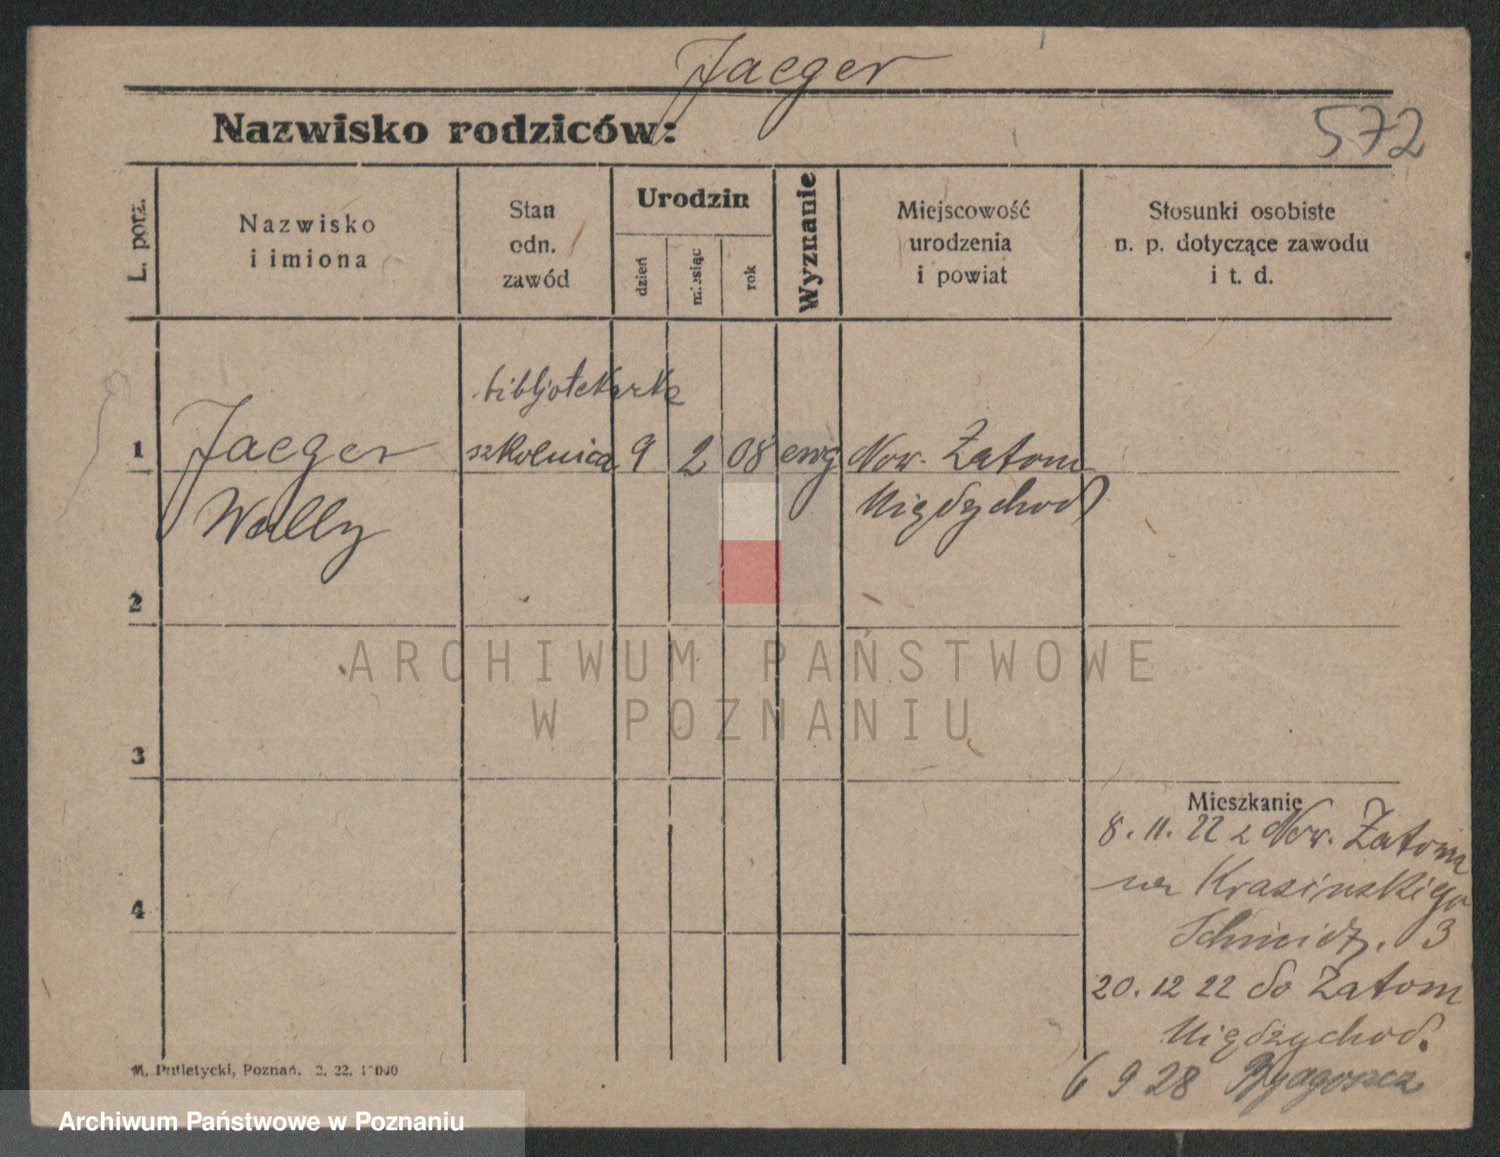 Jaeger
572
Nazwisko rodziców:
L. porz.
Nazwisko
i imiona
Stan
odn.
zawód
Urodzin
dzień
miesiąc
rok
Wyznanie
Miejscowość
urodzenia
i powiat
Stosunki osobiste
n. p. dotyczące zawodu
i t. d.
bibljotekarka
1 Jaeger szkolnica 9 2 08 ewg Now. Zatom
Wally Międzychod
2
ARCHIWUM PAŃSTWOWE
W POZNANIU
3
Mieszkanie
8. 11. 22 z Now. Zatomia
na Krasińskiego
4
Schmidt. 3
20. 12 22 do Zatom
Międzychod.
6 9 28 Bydgoszcz
M. Putiatycki, Poznań. 2. 22.
Archiwum Państwowe w Poznaniu